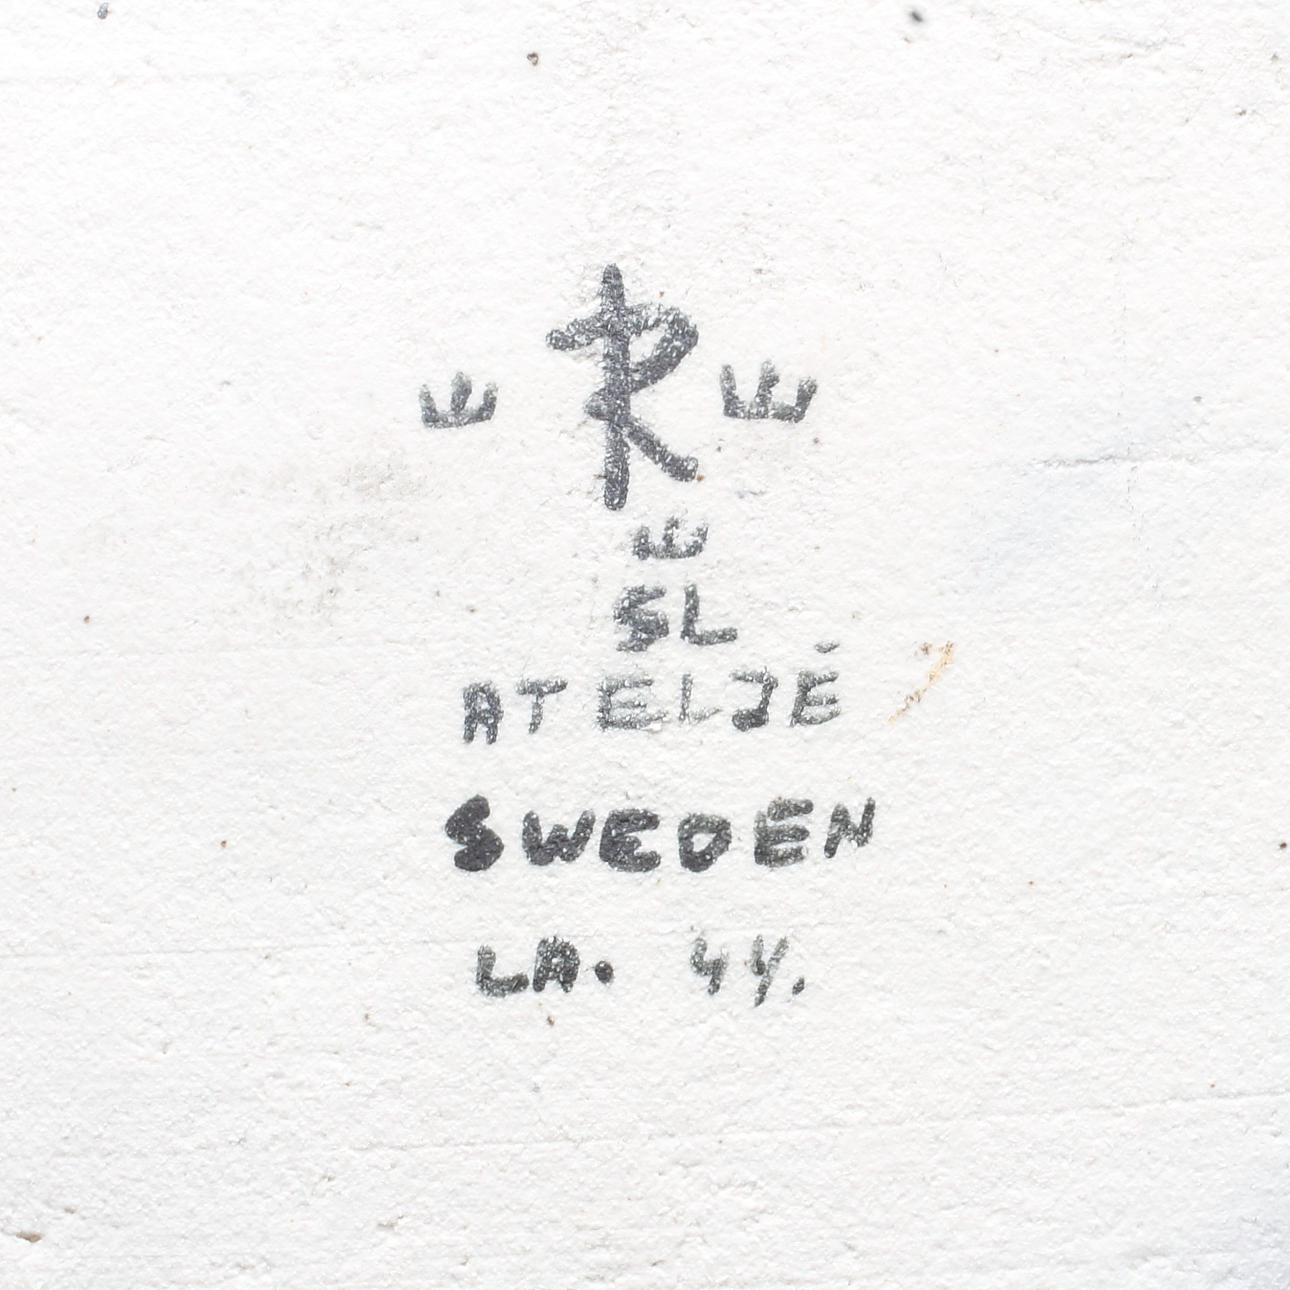 R
SL
ATELJÉ
SWEDEN
LA. 44.